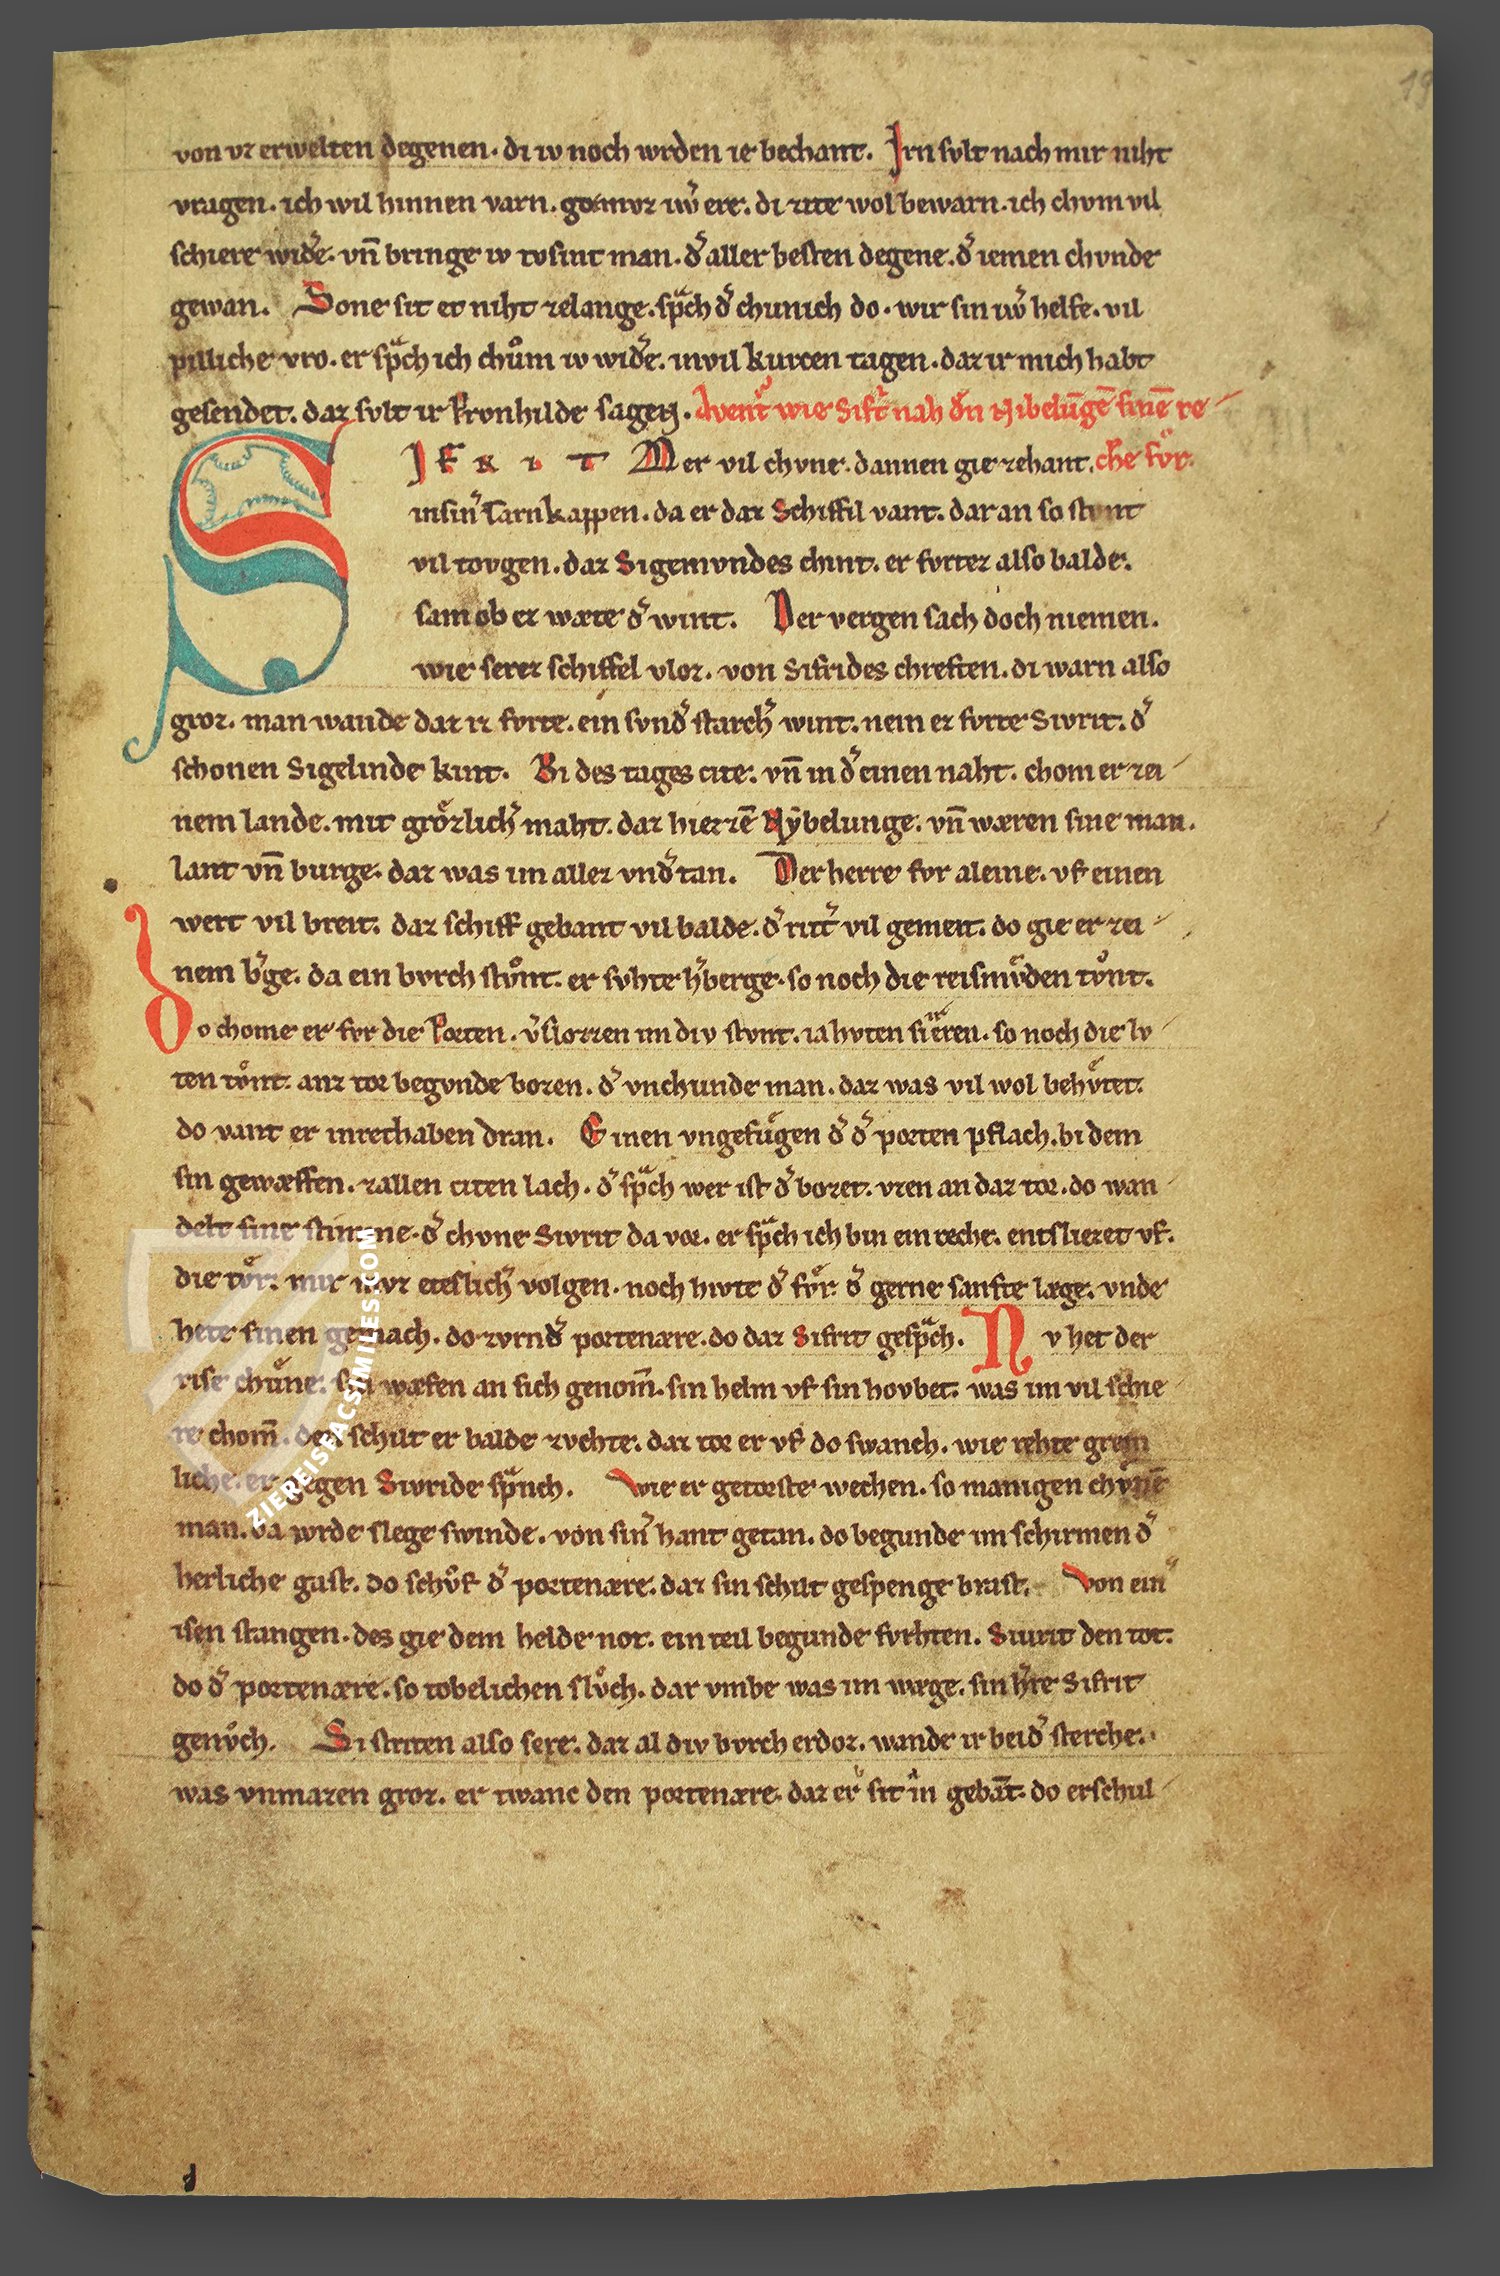 19
von vz erwelten degenen. di iv noch wrden ie bechant. Irn svlt nach mir niht
vragen. ich wil hinnen varn. got mvz iwͤ ere. di zite wol bewarn. ich chvm vil
schiere wideͤ. vn̄ bringe iv tvsint man. dͤ aller besten degene. dͤ iemen chvnde
gewan. Sone sit et niht zelange. spͣch dͤ chunich do. wir sin iwͤ helfe. vil
pilliche vro. er spͣch ich chvͦm iv wideͤ. in vil kurcen tagen. daz ir mich habt
gesendet. daz svlt ir Prvnhilde sagen. Avent͛ wie Sifͥt nah dͤn Nibelūgē sinē re
IFRIT Der vil chvne. dannen gie zehant. chē fvͦr.
in sinͤ Tarnkappen. da er daz Schiffil vant. dar an so stvnt
vil tovgen. daz Sigemvndes chint. er fvrtez also balde.
sam ob ez wæte dͤ wint. Der vergen sach doch niemen.
wie serez schiffel vloz. von Sifrides chreften. di warn also
groz. man wande daz iz fvrte. ein svndͤ starchͤ wint. nein ez fvrte Sivrit. dͤ
schonen Sigelinde kint. Bi des tages cite. vn̄ in dͤ einen naht. chom er zei
nem lande. mit groͤzlichͤ maht. daz hiezzē Nẏbelunge. vn̄ wæren sine man.
lant vn̄ burge. daz was im allez vndͤ tan. Der herre fvr aleine. vf einen
wert vil breit. daz schiff gebant vil balde. dͤ ritͤ vil gemeit. do gie er zei
nem bͤge. da ein bvrch stvͦnt. er svhte hͤberge. so noch die reismvͤden tvͦnt.
Do chome er fvr die Porten. vͤslozzen im div stvnt. ia hvten si eren. so noch die lv
ten tvͦnt. anz tor begvnde bozen. dͤ vnchunde man. daz was vil wol behvͤtet.
do vant er inrethaben dran. Einen vngefuͤgen dͤ dͤ porten pflach. bi dem
sin gewæffen. zallen citen lach. dͤ spͣch wer ist dͤ bozet. vzen an daz tor. do wan
delt sine stimme. dͤ chvne Sivrit da vor. er spͣch ich bin ein reche. entsliezet vf.
die tvͤr. mir wrt eteslichͤ volgen. noch hivte dͤ fvͤr. dͤ gerne sanfte læge. vnde
hete sinen gemach. do zvrndͤ portenære. do daz Sifrit gespͣch. Nv het der
rise chuͤne. sin wæfen an sich genom̄. sin helm vf sin hovbet. was im vil schie
re chom̄. den schilt er balde zvchte. daz tor er vf do swanch. wie rehte grem
liche. er gegen Sivride spͣnch. Wie er getorste wechen. so manigen chvnē
man. da wrde slege swinde. von sinͤ hant getan. do begunde im schirmen dͤ
herliche gast. do schvͦf dͤ portenære. daz sin schilt gespenge brast. Von einͤ
isen stangen. des gie dem helde not. ein teil begunde fvrhten. Siurit den tot.
do dͤ portenære. so tobelichen slvͦch. dar vmbe was im wæge. sin hͤre Sifrit
genvͦch. Si striten also sere. daz al div bvrch erdoz. wande ir beidͤ sterche.
was vnmazen groz. er twanc den portenære. daz er sit in gebāt. do erschul
ZIEREISFACSIMILES.COM